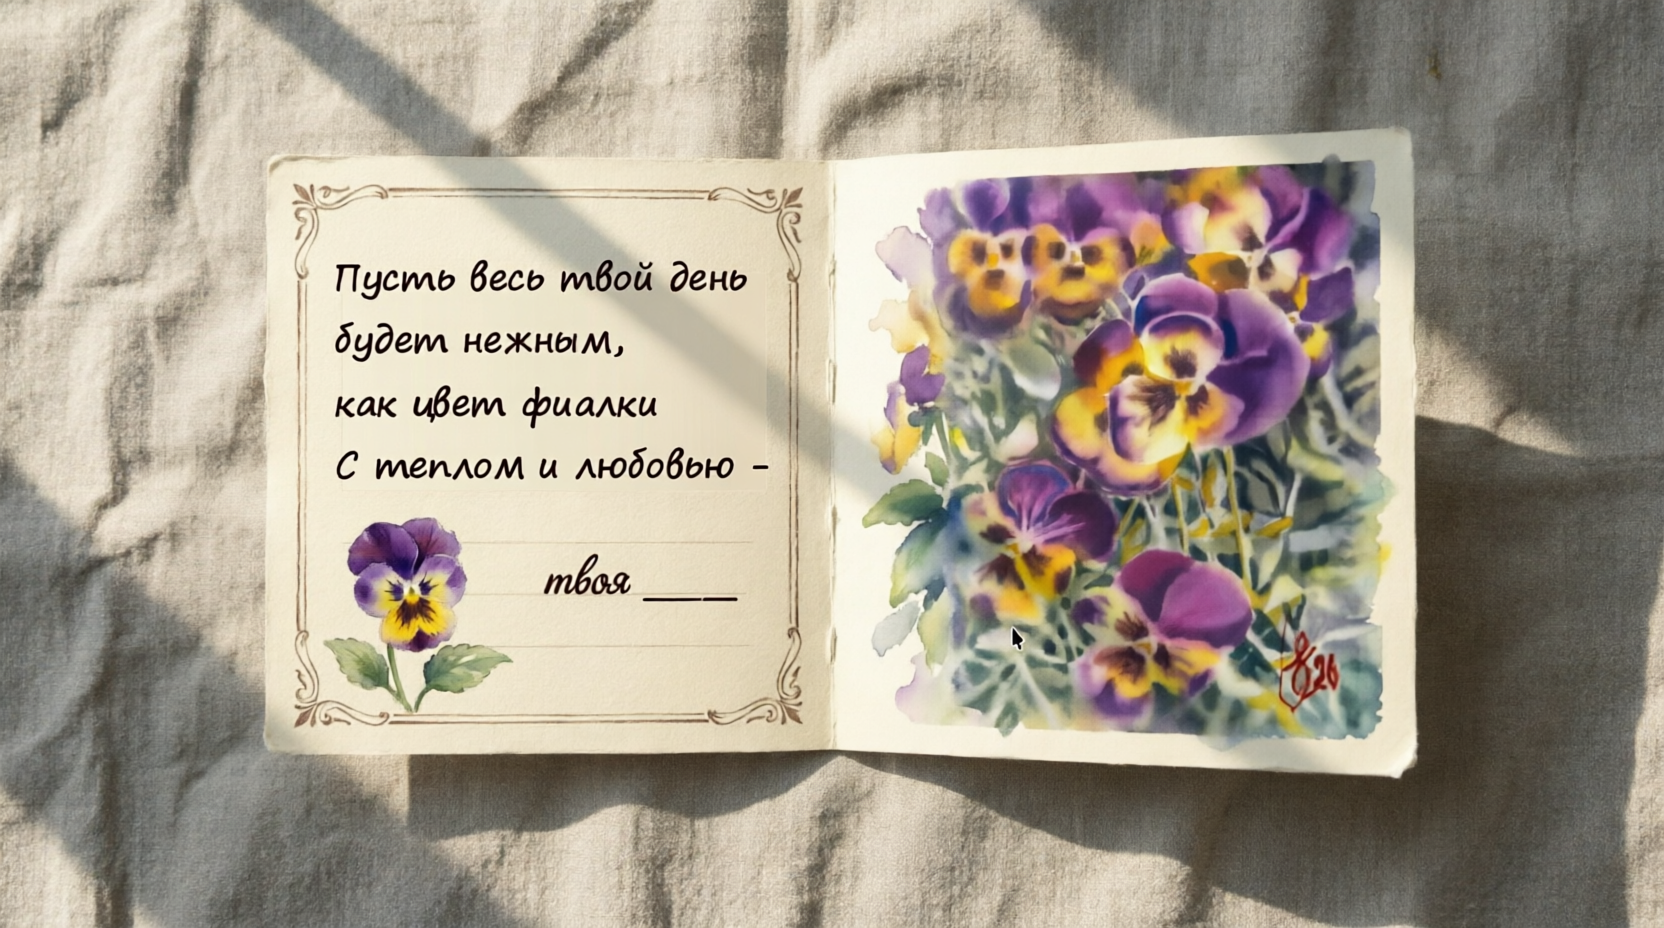 Пусть весь твой день
будет нежным,
как цвет фиалки
С теплом и любовью –
твоя ____
26